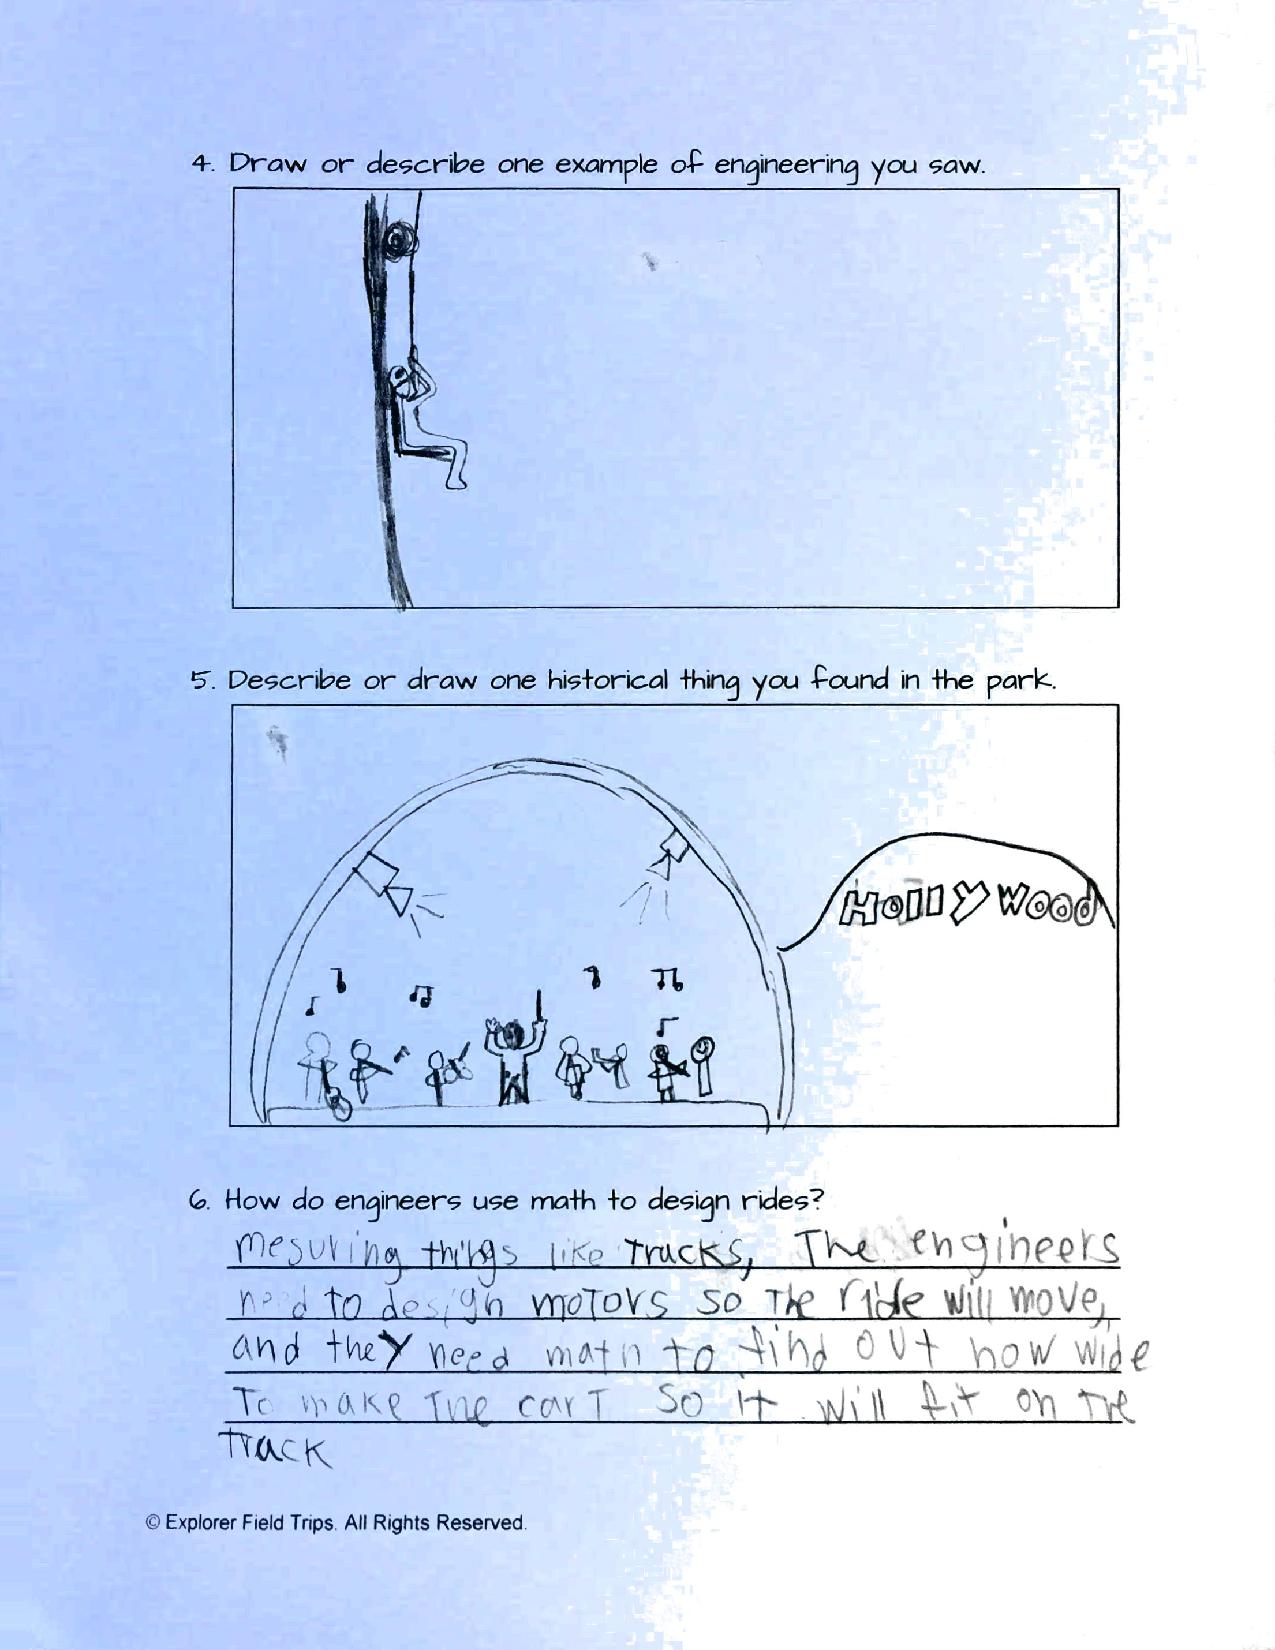 4. Draw or describe one example of engineering you saw.
5. Describe or draw one historical thing you found in the park.
HollyWood
6. How do engineers use math to design rides?
mesuring things like Trucks, The engineers
need to design moTors so The ride will move,
and they need math to find out how wide
To make The cart so it will fit on The
Track
© Explorer Field Trips. All Rights Reserved.